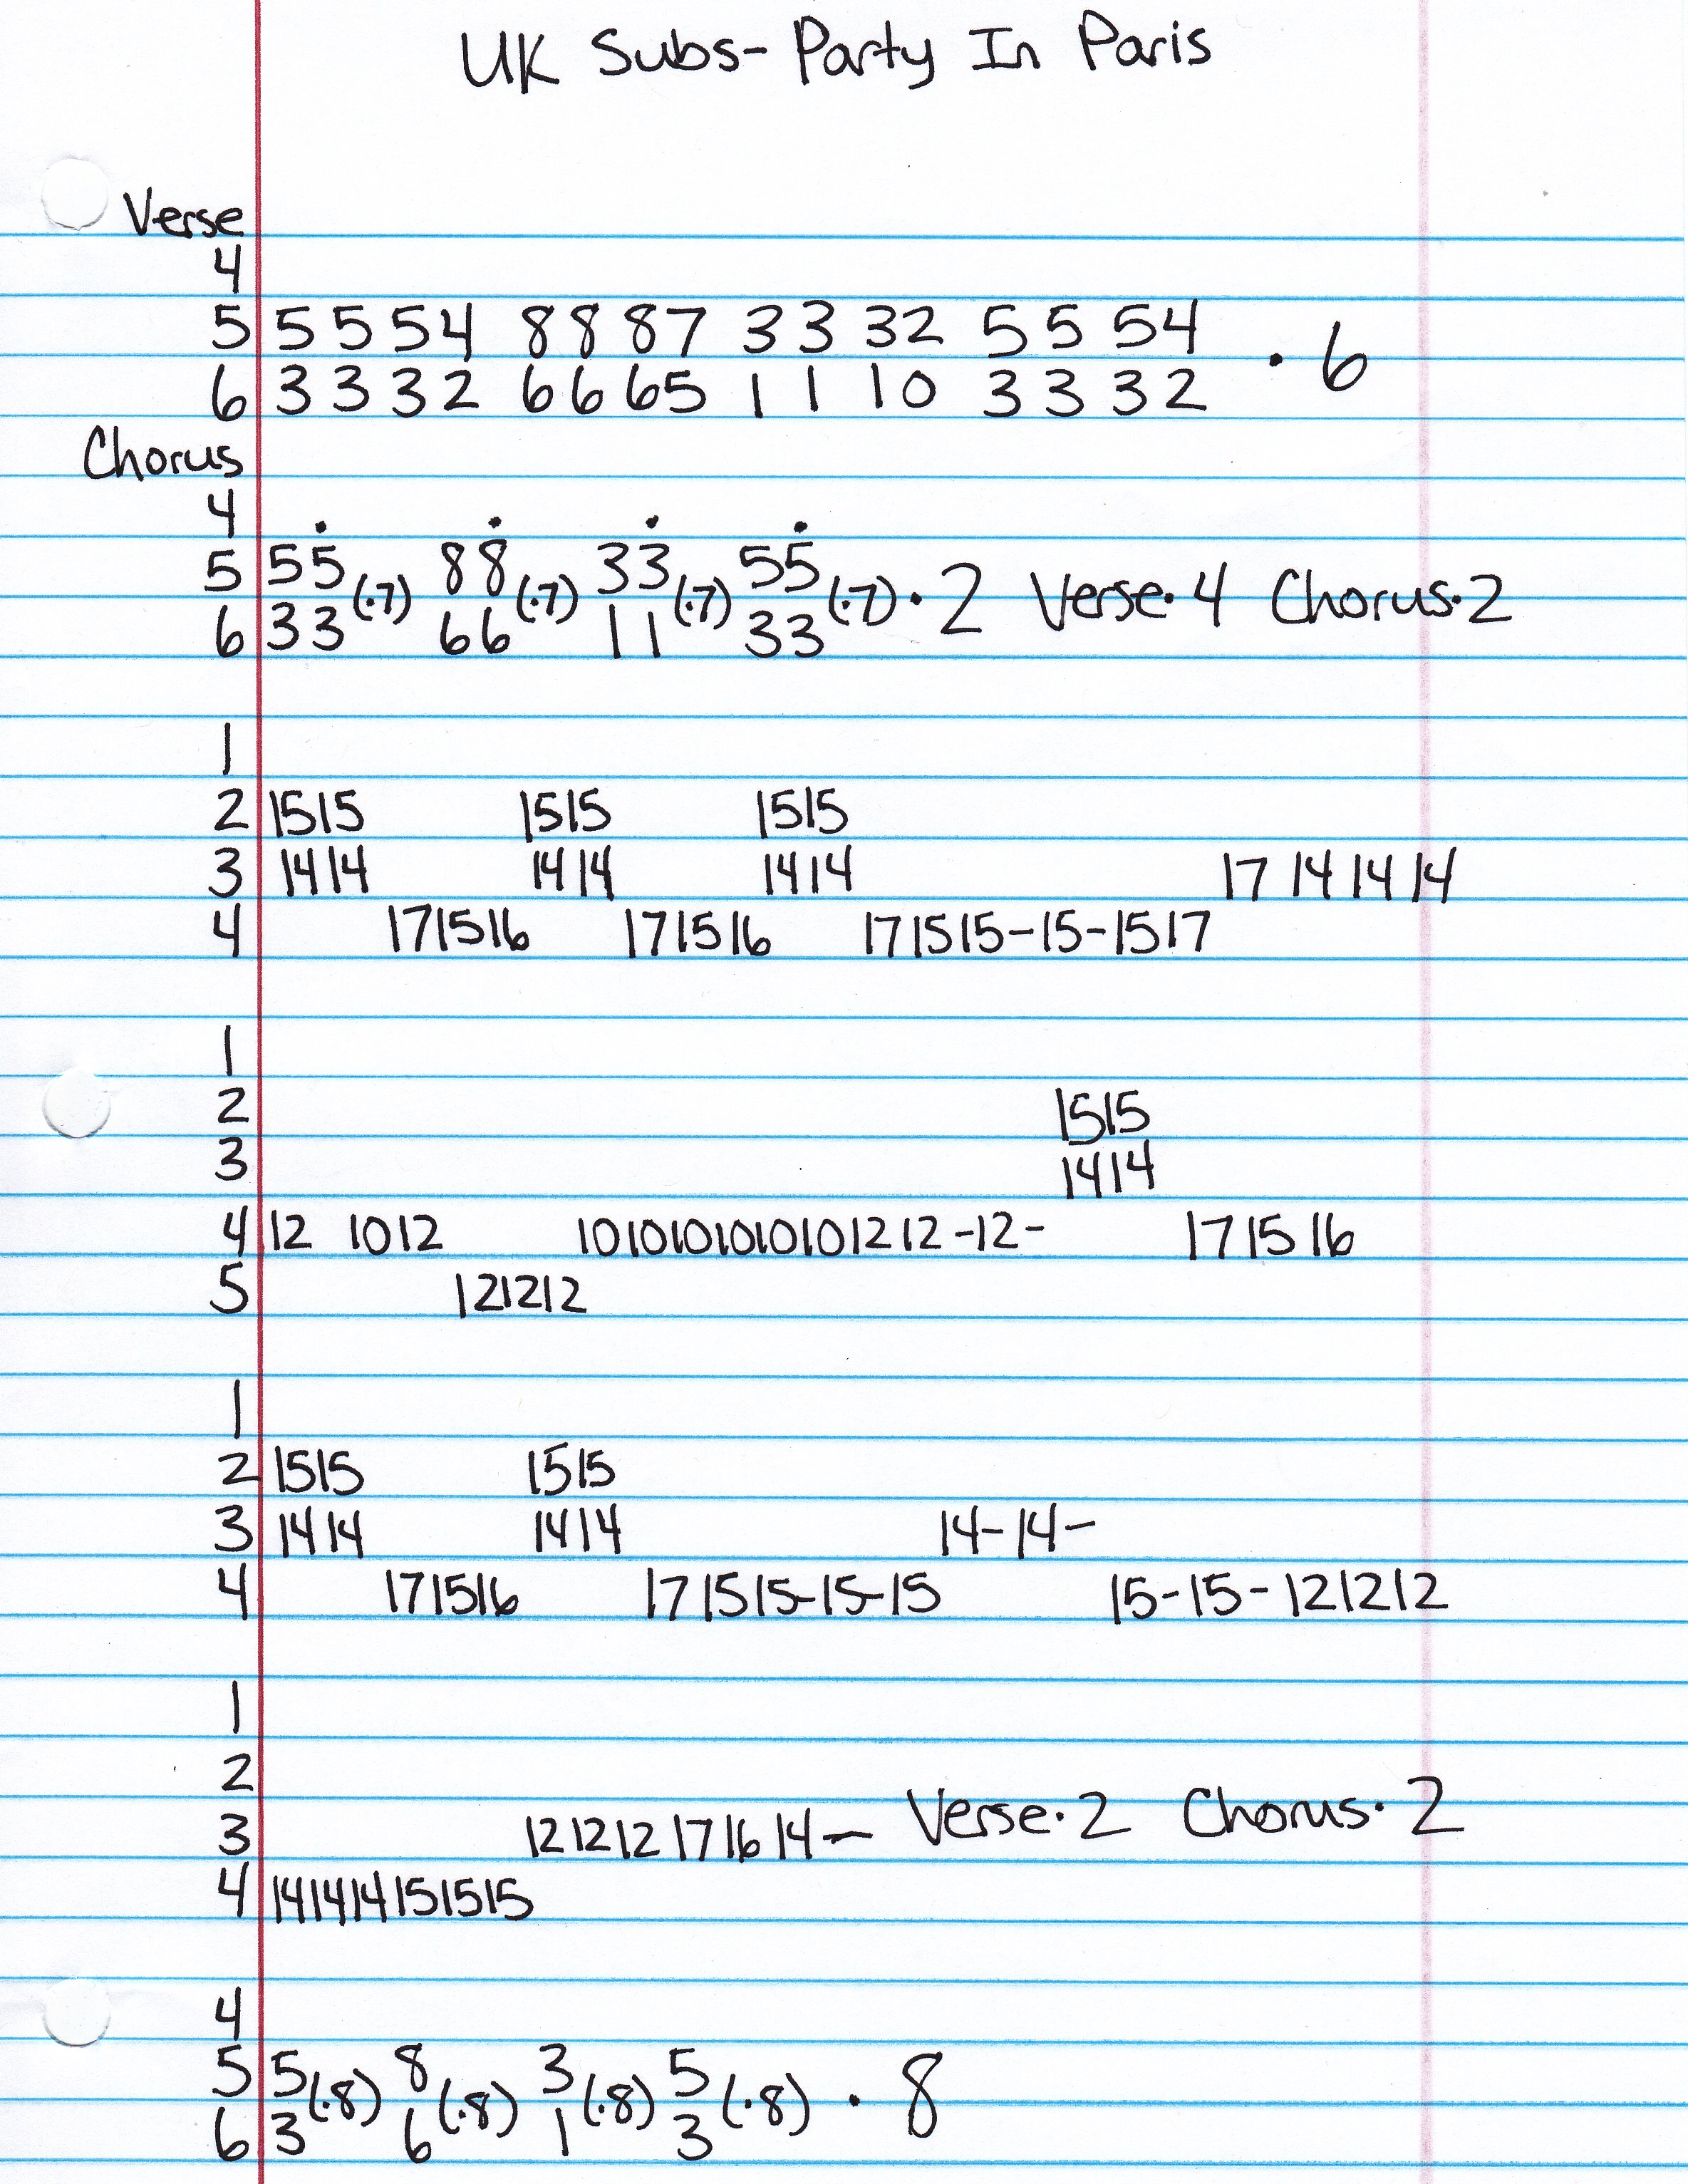 UK Subs- Party In Paris
Verse
4
5 5 5 5 4 8 8 8 7 3 3 3 2 5 5 5 4 · 6
6 3 3 3 2 6 6 6 5 1 1 1 0 3 3 3 2
Chorus
4
5 55 (·7) 88 (·7) 33 (·7) 55 (·7) · 2 Verse· 4 Chorus· 2
6 33 66 11 33
1
2 1515 1515 1515
3 1414 1414 1414 17 14 14 14
4 171516 171516 171515-15-1517
1
2 1515
3 1414
4 12 1012 1010101010101212-12- 171516
5 121212
1
2 1515 1515
3 1414 1414 14-14-
4 171516 171515-15-15 15-15-121212
1
2
3 121212171614- Verse· 2 Chorus· 2
4 141414151515
4
5 5(·8) 8(·8) 3(·8) 5(·8) · 8
6 3 6 1 3